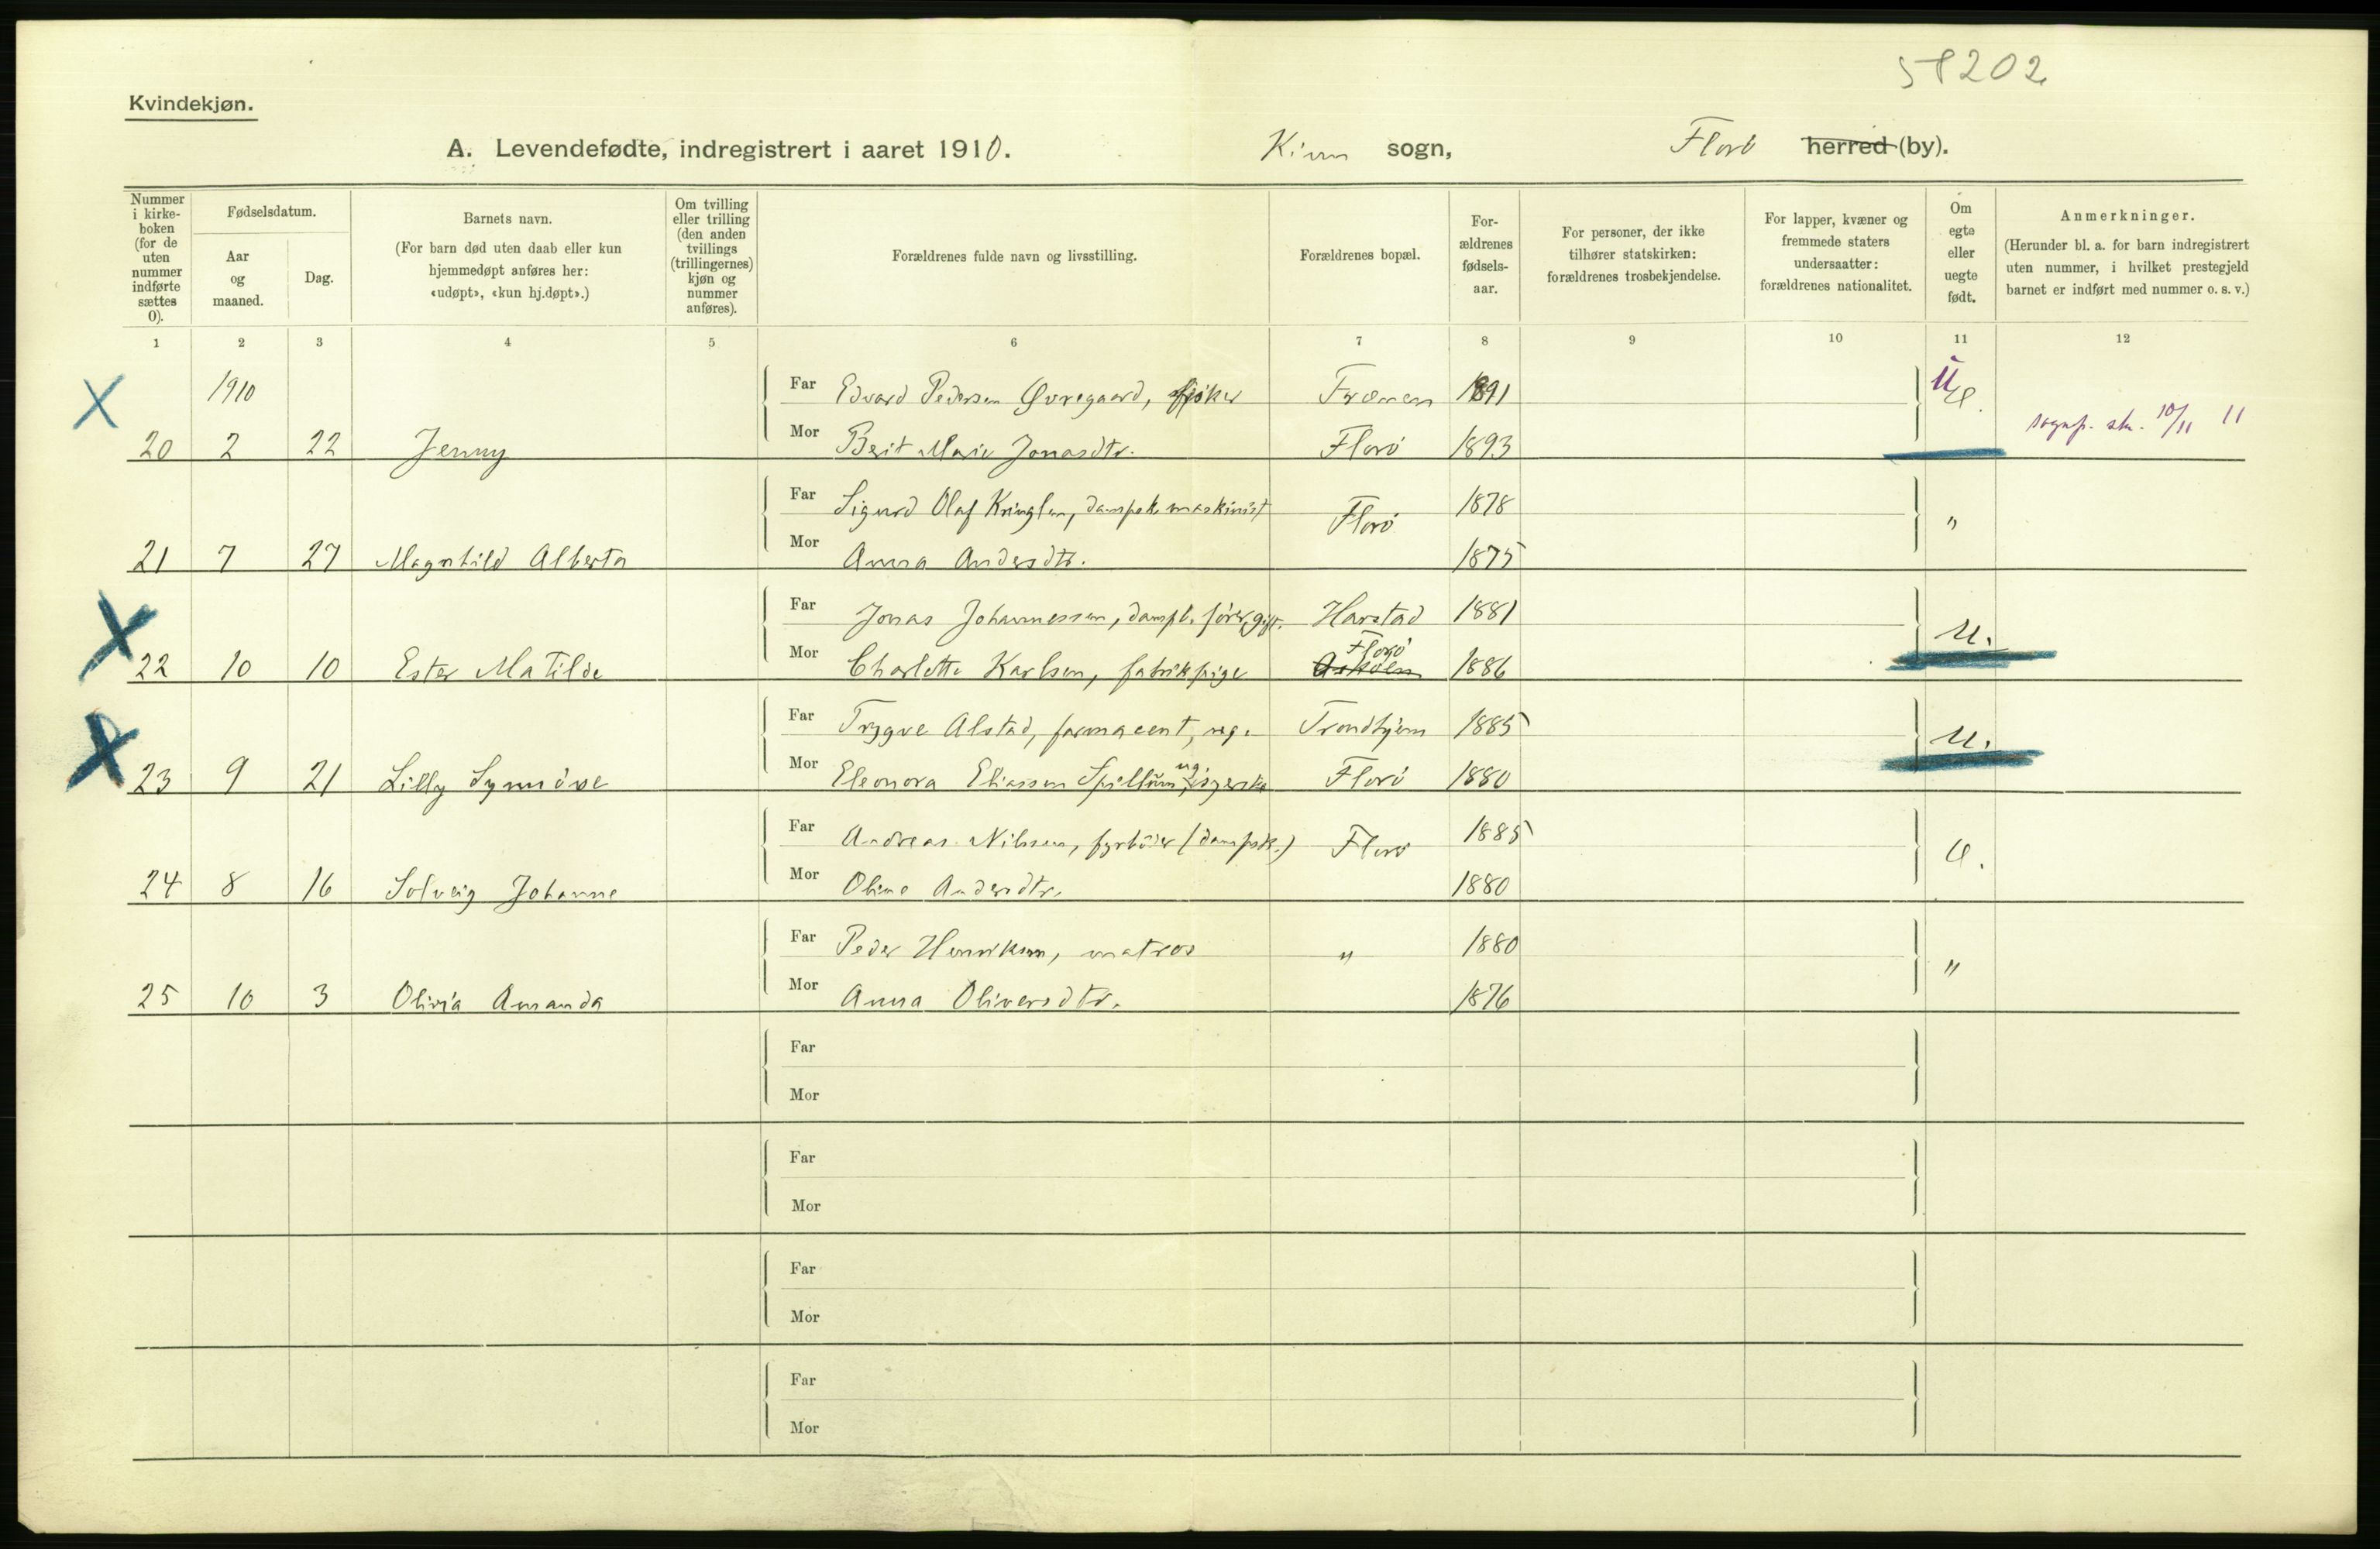 58202
Kvindekjøn.
A. Levendefødte, indregistrert i aaret 1910. Kinn sogn, Florö herred (by).
Nummer i kirkeboken (for de uten nummer indførte sættes 0).
Fødselsdatum.
Aar og maaned.
Dag.
Barnets navn.
(For barn død uten daab eller kun hjemmedøpt anføres her: «udøpt», «kun hj.døpt».)
Om tvilling eller trilling (den anden tvillings (trillingernes) kjøn og nummer anføres).
Forældrenes fulde navn og livsstilling.
Forældrenes bopæl.
Forældrenes fødselsaar.
For personer, der ikke tilhører statskirken: forældrenes trosbekjendelse.
For lapper, kvæner og fremmede staters undersaatter: forældrenes nationalitet.
Om egte eller uegte født.
Anmerkninger.
(Herunder bl. a. for barn indregistrert uten nummer, i hvilket prestegjeld barnet er indført med nummer o. s. v.)
1 2 3 4 5 6 7 8 9 10 11 12
1910 Far Edvard Pedersen Øvregaard, fisker 1891 U
20 2 22 Jenny Mor Berit Marie Jonasdtr. Florö 1893 sognp. skr. 10/11 11
Far Sigurd Olaf Kringlen, dampsk. maskinist Florö 1878 "
21 7 27 Magnhild Alberta Mor Anna Andersdtr. 1875
Far Jonas Johannessen, dampb. förer, gift. Harstad 1881 U.
22 10 10 Ester Matilde Mor Charlotte Karlsen, fabrikpige Florö 1886
Far Trygve Alstad, farmacent, ug. Trondhjem 1885 U.
23 9 21 Lilly Synnöve Mor Eleonora Eliassen Spillum, ug. syerske Florö 1880
Far Andreas Nilssen, fyrböder (dampsk.) Florö 1885 E.
24 8 16 Solveig Johanne Mor Oline Andersdtr. 1880
Far Peder Henriksen, matros " 1880 "
25 10 3 Olivia Amanda Mor Anna Oliversdtr. 1876
Far
Mor
Far
Mor
Far
Mor
Far
Mor